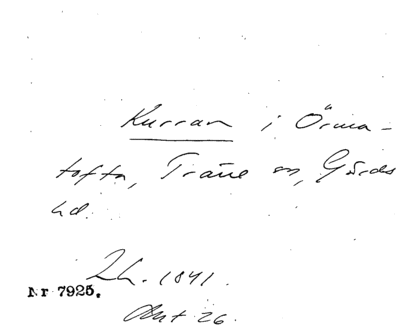 Kurran i Örma-
tofta, Träne sn, Gärds
hd.
Lh. 1841.
Nr 7925.
Akt 26.